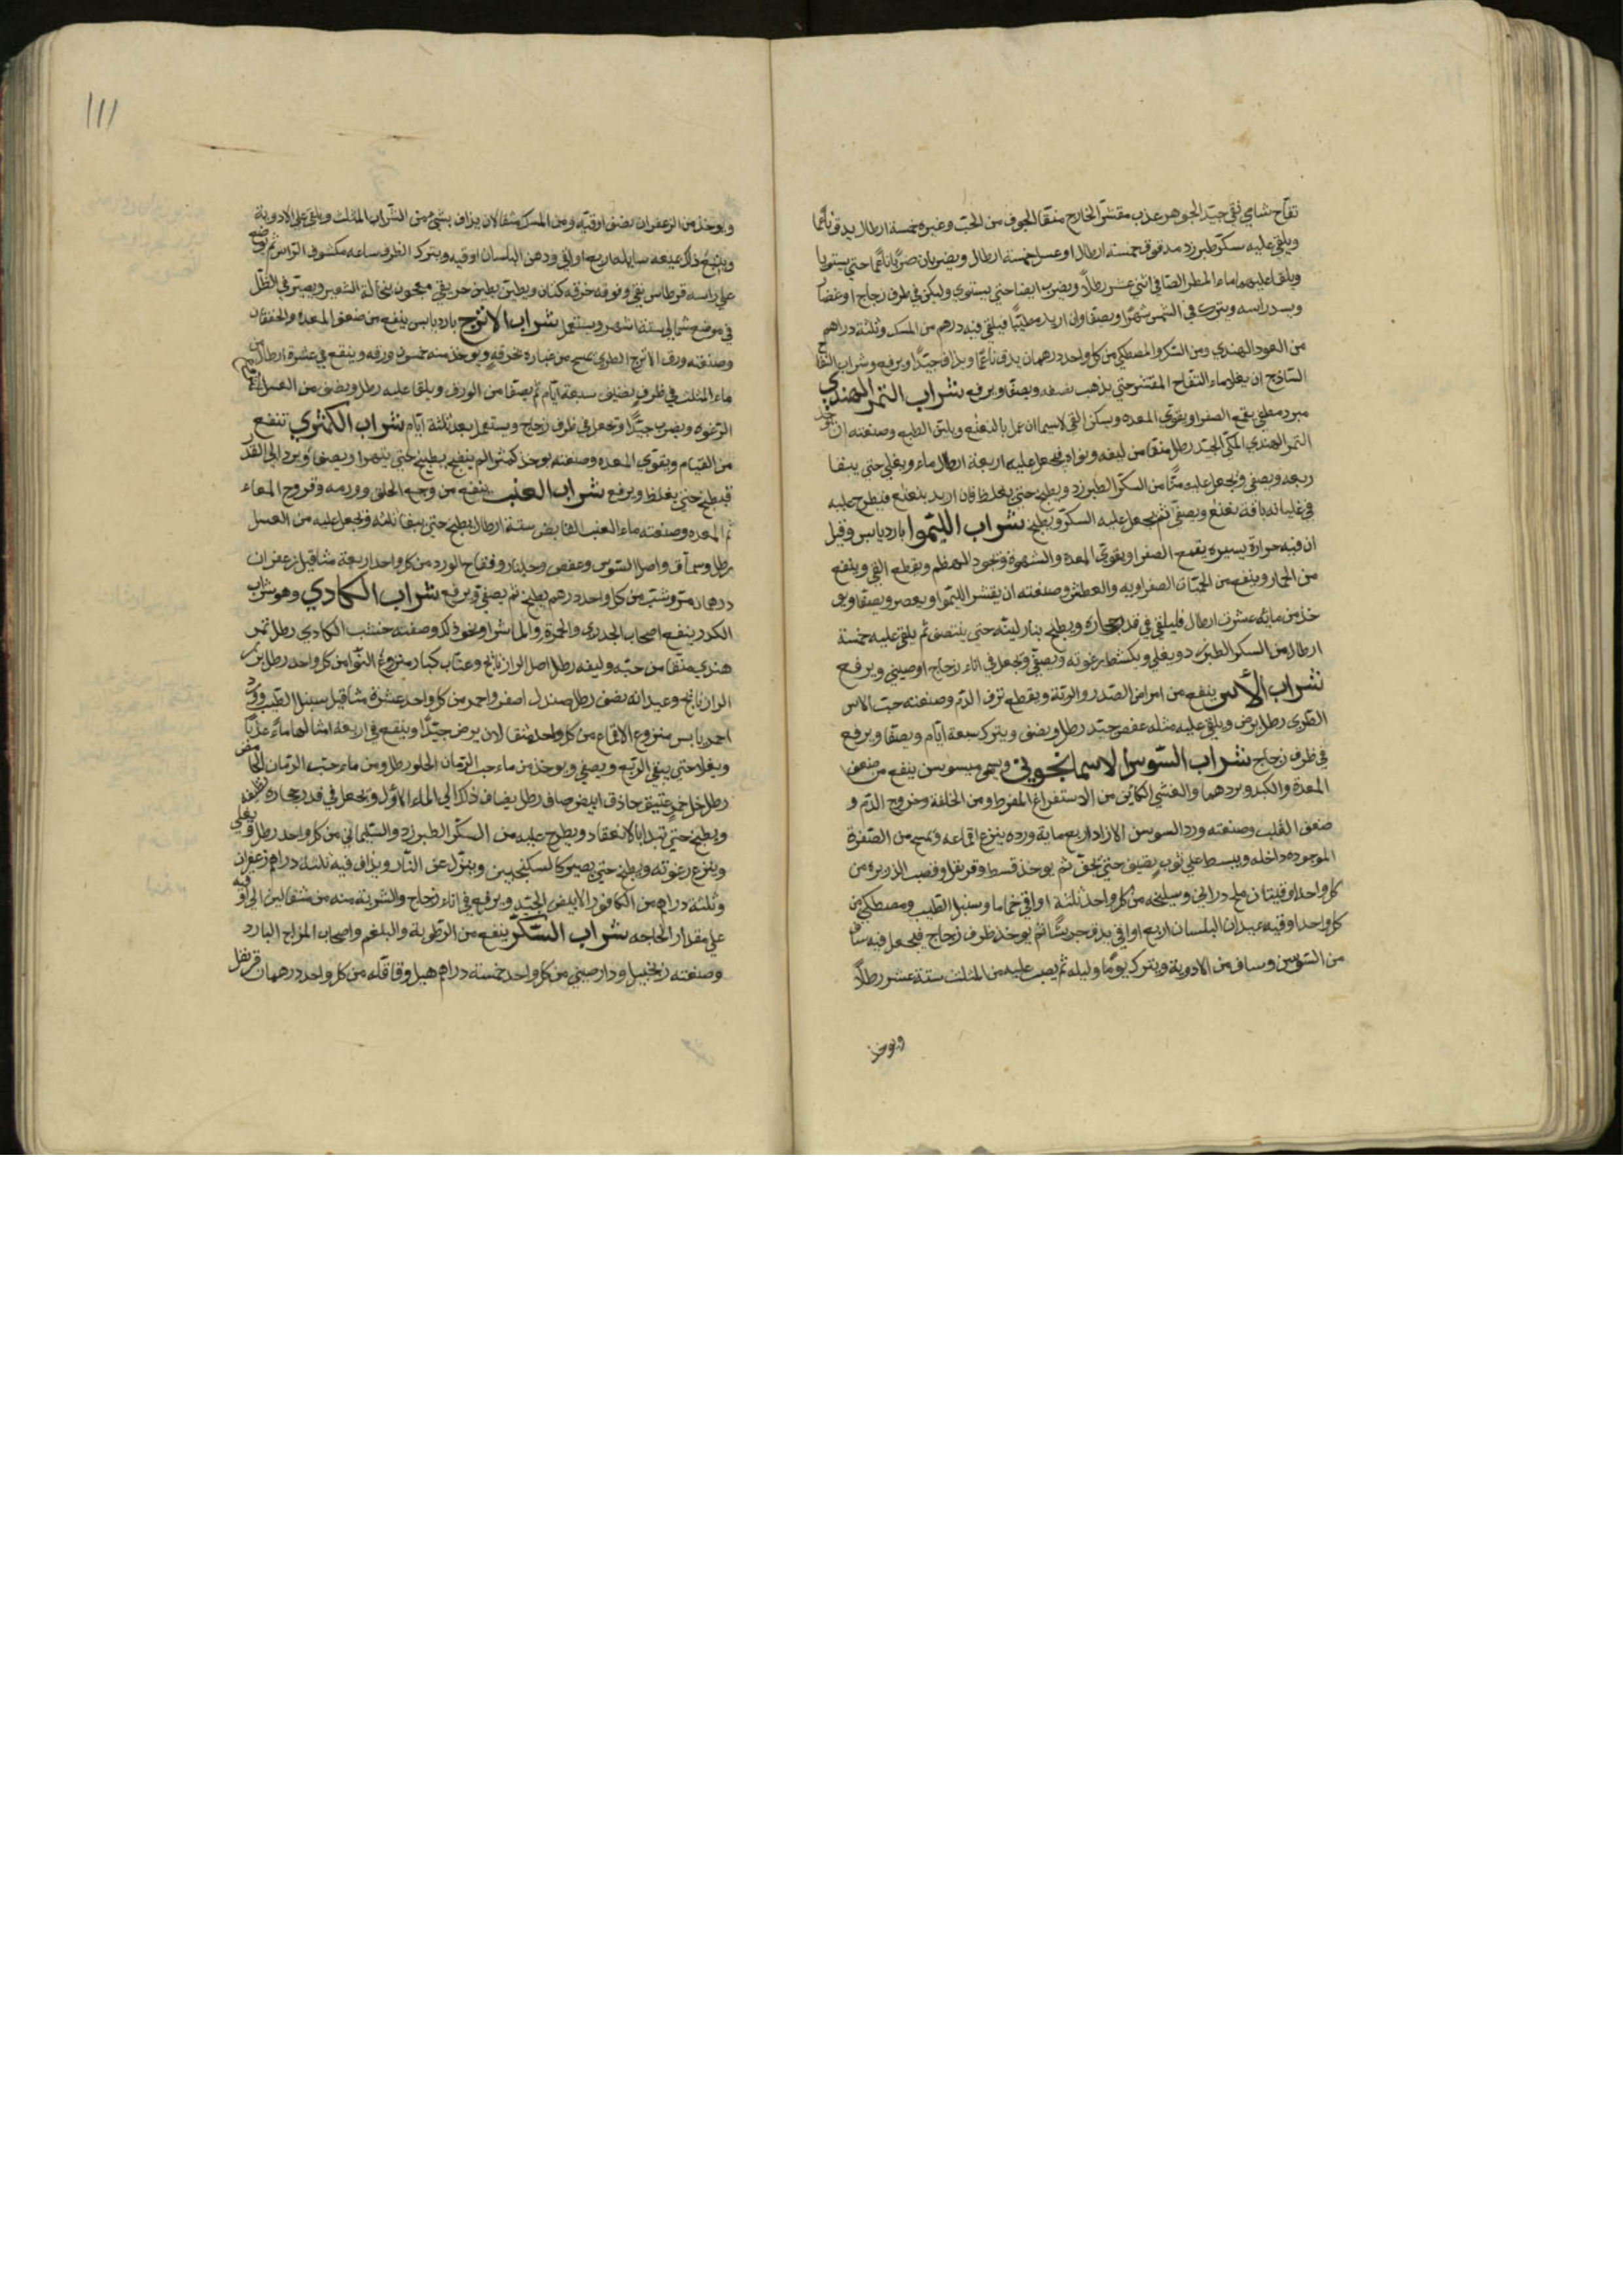 تفاح شامي نقي جيد الجوهر عذب مقشر الخارج منقا الجوف من الحب وغيره خمسة ارطال يدق ناعما
ويلقي عليه سكر طبرزد مدقوق خمسة ارطال او عسل خمسة ارطال ويضربان ضربا ناعما حتي يستويا
ويلقا عليهما ماء المطر الصافي اثني عشر رطلا ويضرب ايضا حتي يستوي وليكن في ظرف زجاج او غضار
ويسد راسه ويترك في الشمس شهرا ويصفا وان اريد مطيبا فيلقي فيه درهم من المسك وثلثة دراهم
من العود الهندي ومن السك والمصطكي من كل واحد درهمان يدق ناعما ويذاف جيدا ويرفع وشراب التفاح
الساذج ان يغلا ماء التفاح المقشر حتي يذهب نصفه ويصفا ويرفع شراب التمر الهندي
مبرد مطفي يقمع الصفرا ويقوي المعده ويسكن القي لاسيما ان عمل بالنعنع ويلين الطبع وصنعته ان يوخذ
التمر الهندي المكي الجيد رطل منقا من ليفه ونواه فيجعل عليه اربعة ارطال ماء ويغلي حتي يبقا
ربعه ويصفي ويجعل عليه منا من السكر الطبرزد ويطبخ حتي يغلظ فان اريد بنعنع فيطرح عليه
في غليانه باقة نعنع ويصفي ثم يجعل عليه السكر ويطبخ شراب الليموا بارد يابس وقيل
ان فيه حرارة يسيره يقمع الصفرا ويقوي المعده والشهوة ويجود الهضم ويقطع القي وينفع
من الخمار وينفع من الحميات الصفراويه والعطش وصنعته ان يقشر الليموا ويعصر ويصفا ويو
خذ من مائه عشرة ارطال فليلقي في قدر حجاره ويطبخ بنار لينه حتي ينتصف ثم يلقي عليه خمسة
ارطال من السكر الطبرزد ويغلي ويكشط رغوته ويصفي ويجعل في اناء زجاج او صيني ويرفع
شراب الأس ينفع من امراض الصدر والرية ويقطع نزف الدم وصنعته حب الاس
الطري رطل يرض ويلقي عليه مثله عفص جيد رطل ونصف ويترك سبعة ايام ويصفا ويرفع
في ظرف زجاج شراب السوس الاسمانجوني ويسمي ميسوسن ينفع من ضعف
المعدة والكبد وبردهما والغشي الكاين من الاستفراغ المفرط ومن الخلفة وخروج الدم و
ضعف القلب وصنعته ورد السوسن الازاد اربع ماية ورده ينزع اقماعه ويمسح من الصفرة
الموجوده داخله ويبسط علي ثوب نظيف حتي يجف ثم يوخذ قسط وقرنفل وقصب الذريره من
كل واحد اوقيتان ملح دراني وسليخه من كل واحد ثلثة اواقي حماما وسنبل الطيب ومصطكي من
كل واحد اوقيه عيدان البلسان اربع اواقي يدق جريشا ثم يوخذ ظرف زجاج فيجعل فيه ساف
من السوسن وساف من الادوية ويترك يوما وليله ثم يصب عليه من المثلث ستة عشر رطلا
ويوخذ
111
ويوخذ من الزعفران نصف اوقيه ومن المسك مثقالان يذاف بشئ من الشراب المثلث ويلقي علي الادوية
ويتبع ذلك ميعه سايله اربع اواقي ودهن البلسان اوقيه ويترك الظرف ساعه مكشوف الراس ثم يوضع
علي راسه قرطاس نقي وفوقه خرقه كتان ويطين بطين حر نقي معجون بنخالة الشعير ويصير في الظل
في موضع شمالي ستة اشهر ويستعمل شراب الاترج بارد يابس ينفع من ضعف المعده والخفقان
وصنعته ورق الاترج الطري يمسح من غباره بخرقه ويوخذ منه خمسون ورقه وينقع في عشرة ارطال من
ماء المثلث في ظرف نظيف سبعة ايام ثم يصفا من الورق ويلقا عليه رطل ونصف من العسل
الرغوه ويضرب جيدا ويجعل في ظرف زجاج ويستعمل بعد ثلثة ايام شراب الكمثري تنفع
من القيام ويقوي المعده وصنعته يوخذ كمثرا لم ينضج يطبخ حتي يتهرا ويصفا ويرد الي القدر
فيطبخ حتي يغلظ ويرفع شراب العنب ينفع من وجع الحلق وورمه وقروح المعاء
ثم المعده وصنعته ماء العنب القابض ستة ارطال يطبخ حتي يبقا ثلثه ويجعل عليه من العسل
رطل وسماق واصل السوس وعفص وجلنار وفقاح الورد من كل واحد اربعة مثاقيل زعفران
درهمان مر وشب من كل واحد درهم يطبخ ثم يصفي ويرفع شراب الكادي وهو شراب
الكدر ينفع اصحاب الجدري والحمرة والماشرا ونحو ذلك وصفته خشب الكادي رطل تمر
هندي منقا من حبه وليفه رطل اصل الرازيانج وعناب كبار منزوع النوا من كل واحد رطل بزر
الرازيانج وعيدانه نصف رطل صندل اصفر واحمر من كل واحد عشرة مثاقيل سنبل الطيب وورد
احمر يابس منزوع الاقماع من كل واحد مثقالان يرض جيدا وينقع في اربعة امثالها ماء عذبا
ويغلا حتي يبقي الربع ويصفي ويوخذ من ماء حب الرمان الحلو رطل ومن ماء حب الرمان الحامض
رطل خل خمر عتيق حاذق ابيض صاف رطل يضاف ذلك الي الماء الاول ويجعل في قدر حجاره نظيفه
ويطبخ حتي تبدا بالانعقاد ويطرح عليه من السكر الطبرزد والسليماني من كل واحد رطل يغلي
وينزع رغوته ويطبخ حتي يصير كالسكنجبين وينزل عن النار ويذاف فيه ثلثة دراهم زعفران
وثلثه دراهم من الكافور الابيض الجيد ويرفع في اناء زجاج والشربة منه من مثقالين الي اوقيه
علي مقدار الحاجه شراب السكر ينفع من الرطوبة والبلغم واصحاب المزاج البارد
وصنعته زنجبيل ودارصيني من كل واحد خمسة دراهم هيل وقاقله من كل واحد درهمان قرنفل